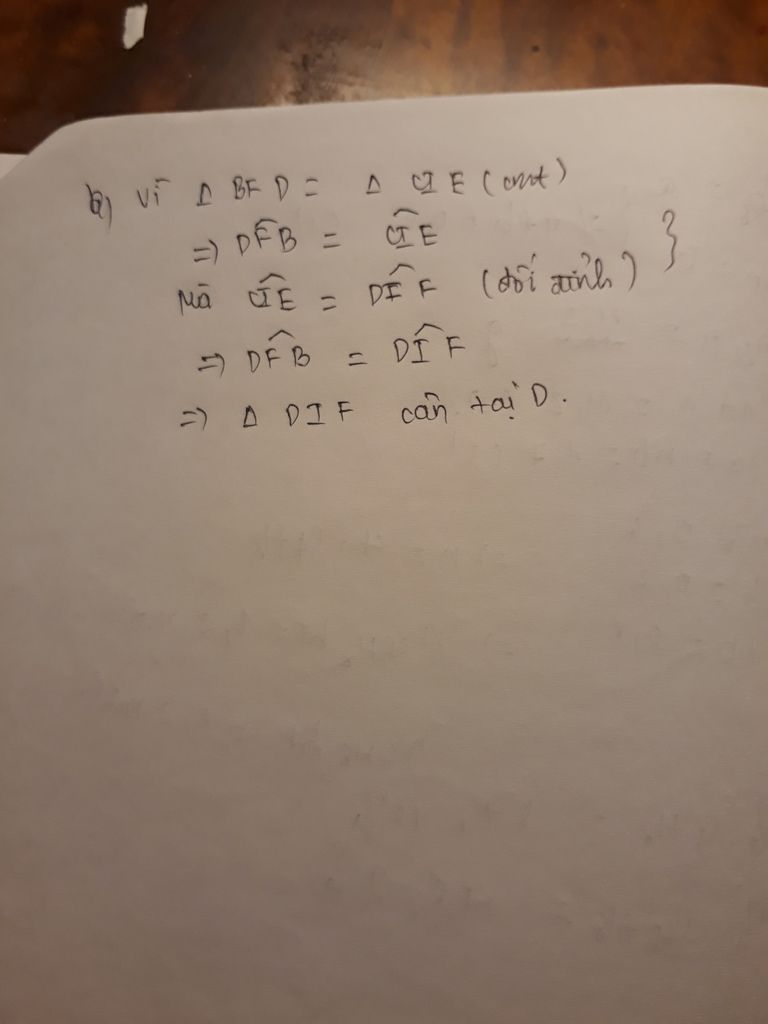 b) Vì Δ BFD = Δ CIE (cmt)
=> DF̂B = CÎE }
Mà CÎE = DÎF (đối đỉnh)
=> DF̂B = DÎF
=> Δ DIF cân tại D.